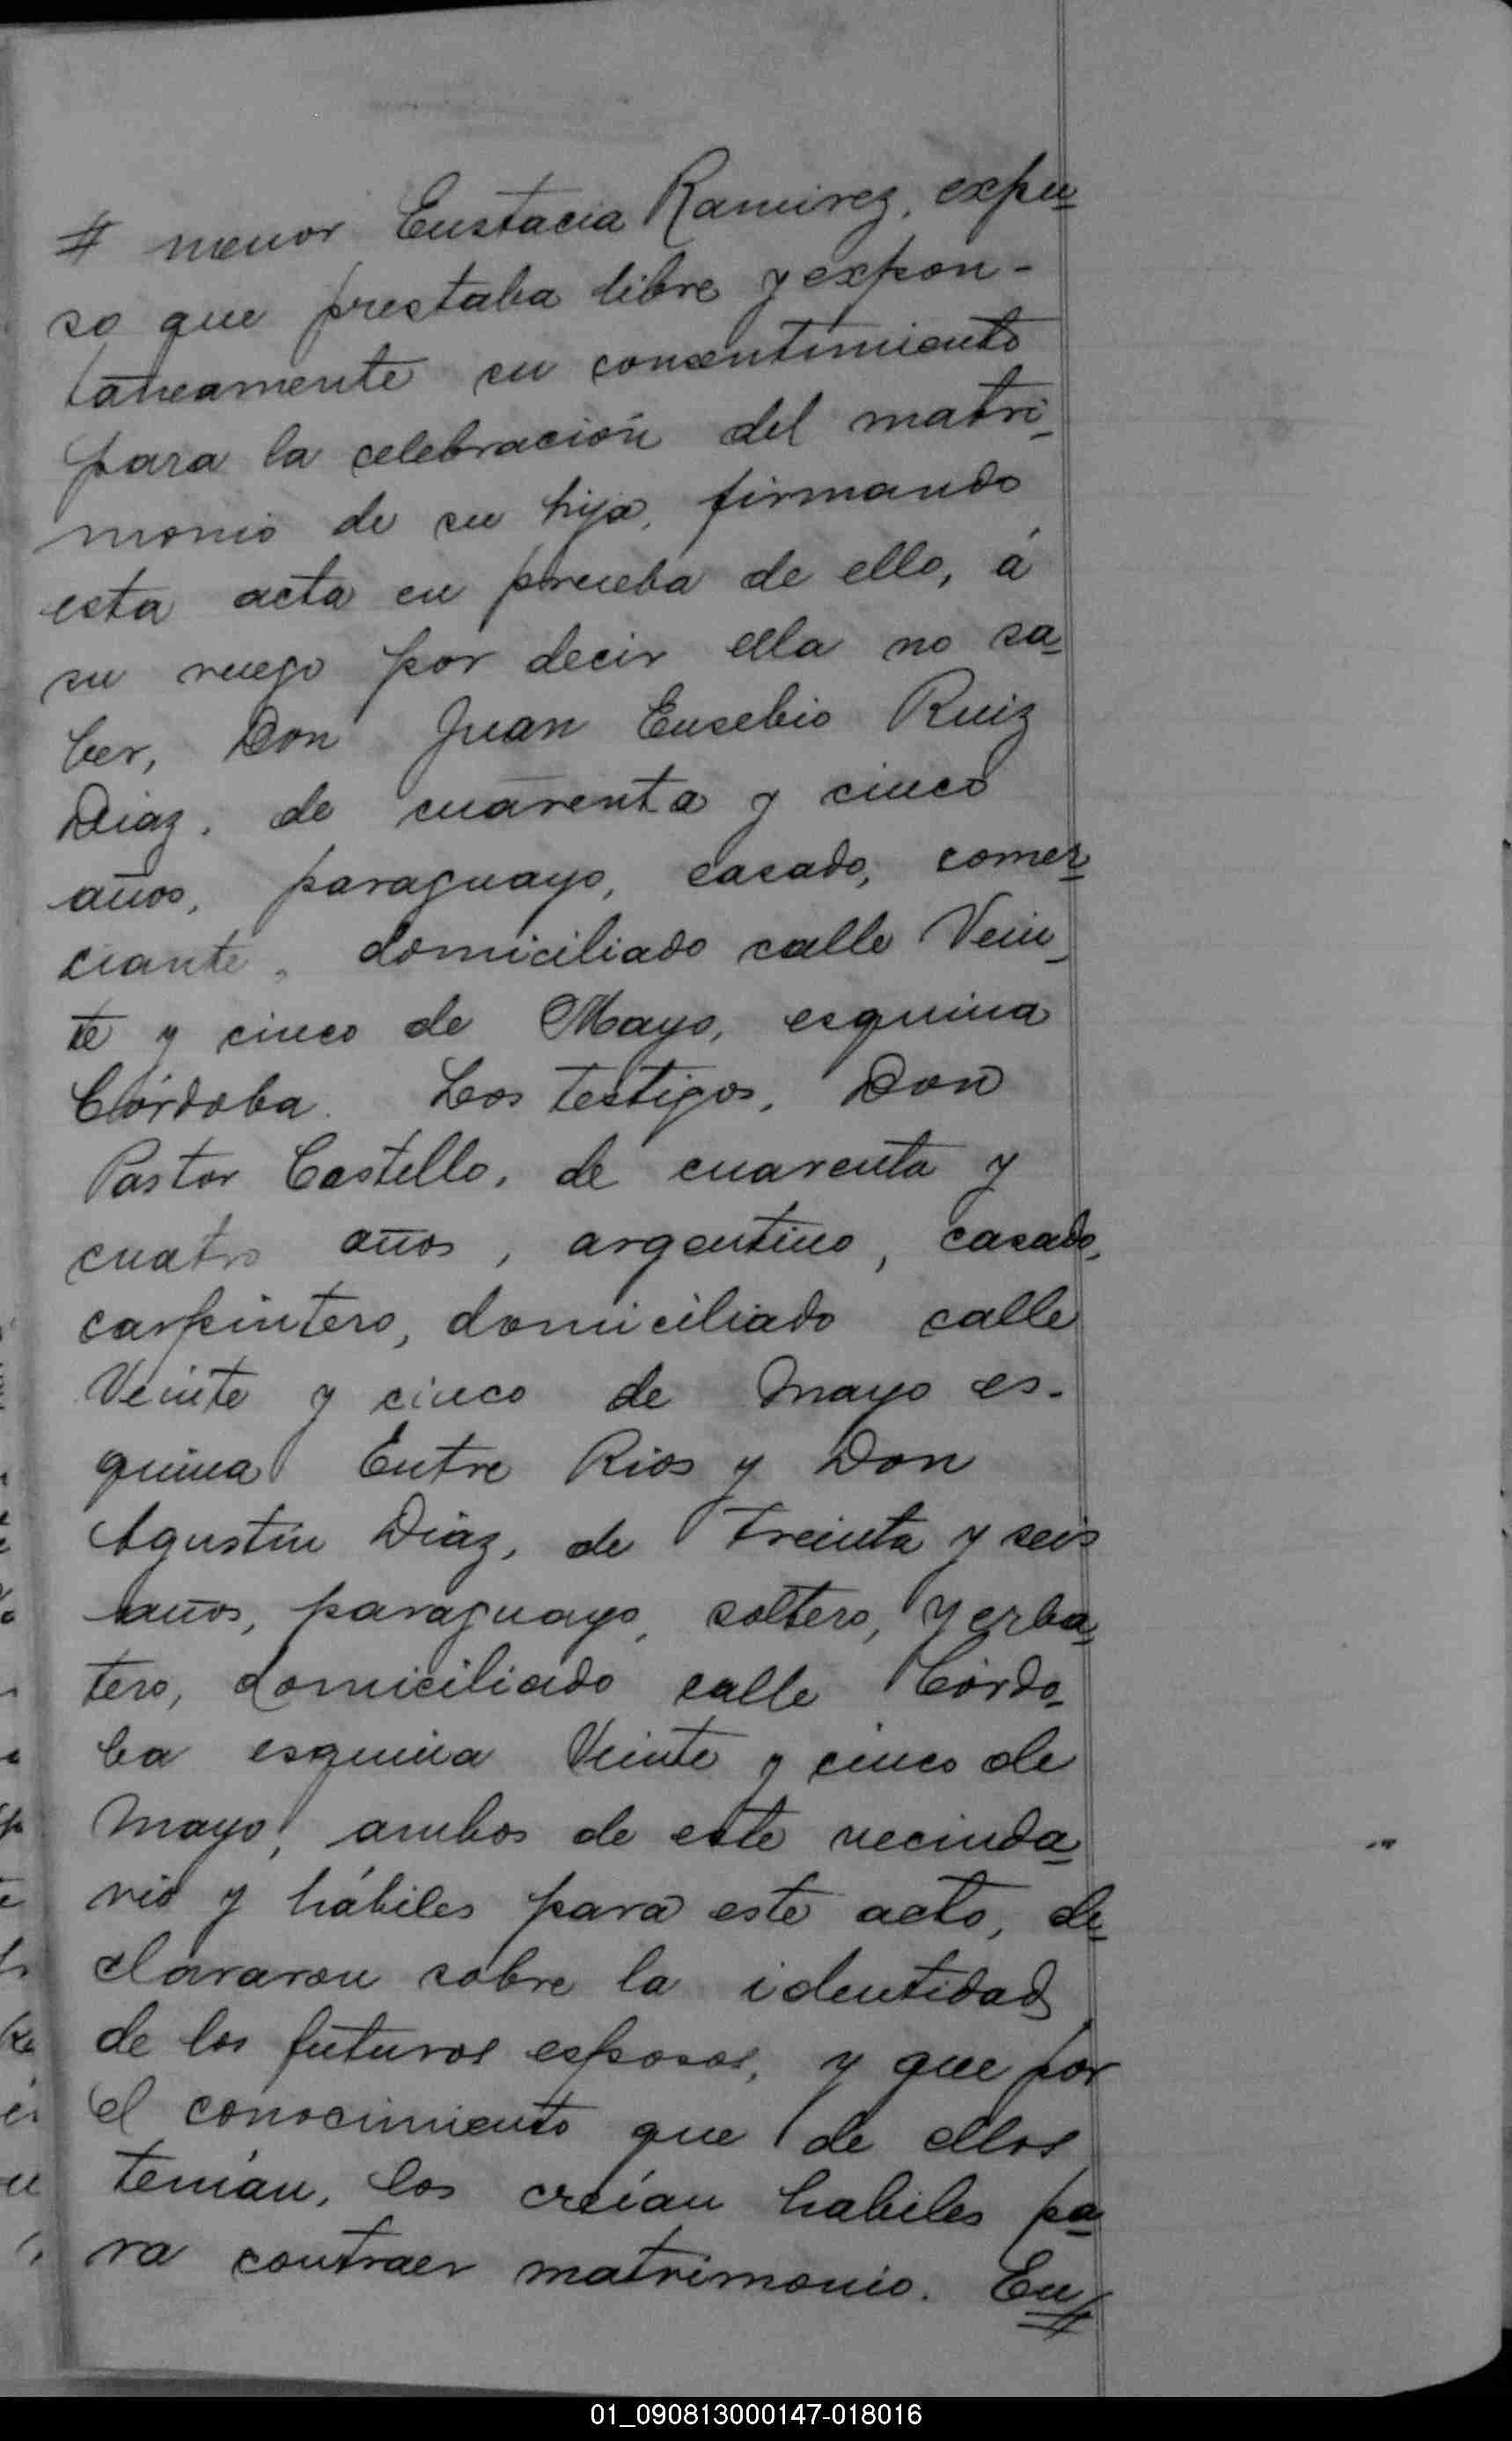 # menor Eustacia Ramirez, expu-
so que prestaba libre y expon-
taneamente su consentimiento
para la celebración del matri-
monio de su hija, firmando
esta acta en prueba de ello, á
su ruego por decir ella no sa-
ber, Don Juan Eusebio Ruiz
Diaz, de cuarenta y cinco
años, paraguayo, casado, comer-
ciante, domiciliado calle Vein-
te y cinco de Mayo, esquina
Córdoba. Los testigos, Don
Pastor Castello, de cuarenta y
cuatro años, argentino, casado,
carpintero, domiciliado calle
Veinte y cinco de Mayo es-
quina Entre Rios y Don
Agustín Diaz, de treinta y seis
años, paraguayo, soltero, yerba-
tero, domiciliado calle Córdo-
ba esquina Veinte y cinco de
Mayo, ambos de este vecinda-
rio y hábiles para este acto, de-
clararon sobre la identidad
de los futuros esposos, y que por
el conocimiento que de ellos
tenían, los creían habiles pa-
ra contraer matrimonio. En #
01_090813000147-018016